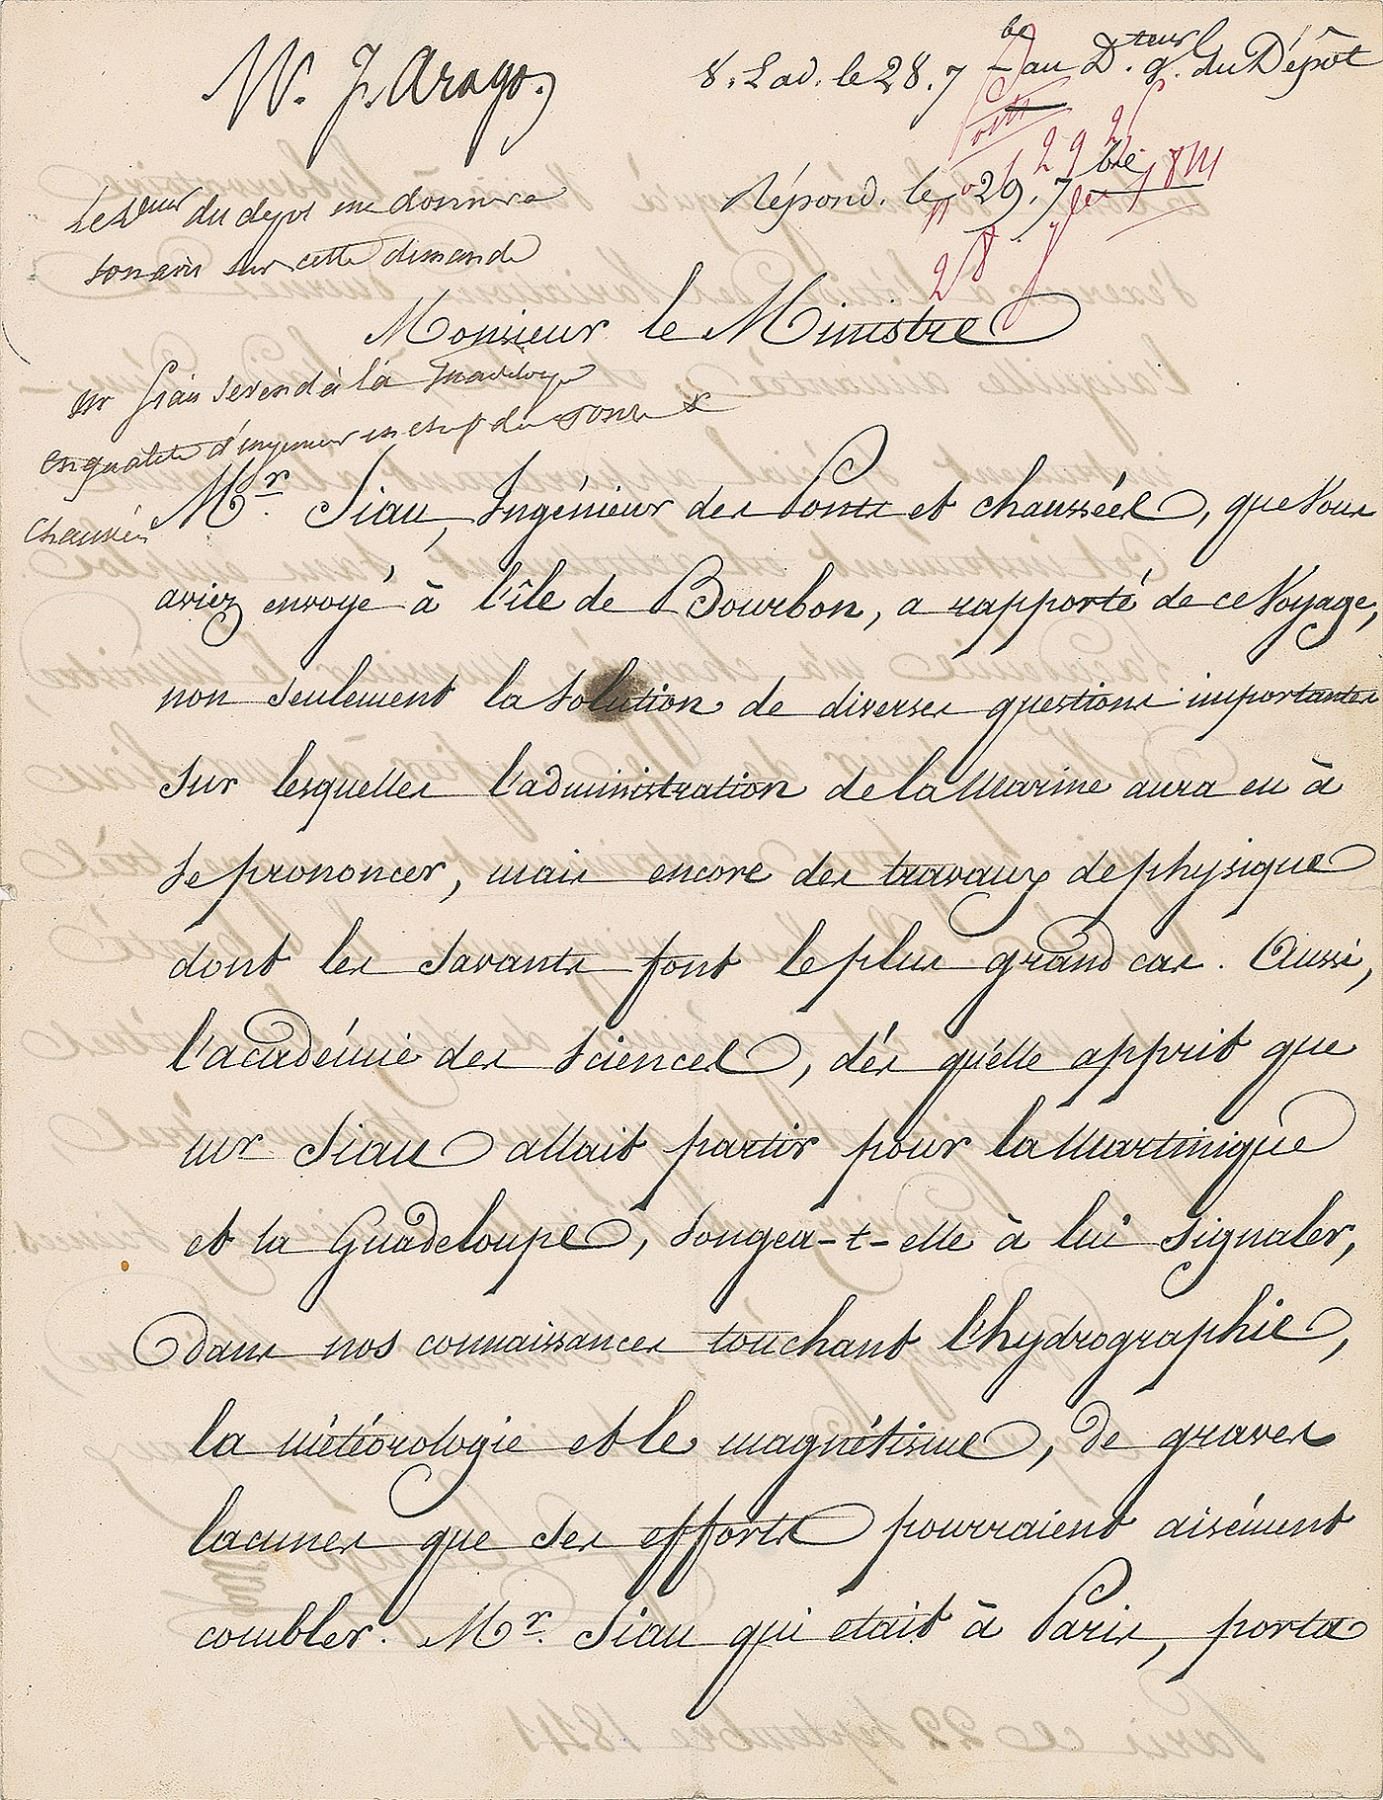 W. F. Arago.
8. Lad. le 28. 7be au Dteur gl du Dépôt
Répond. le 29. 7bre
Le dteur du depot me donnera
son avis sur cette demande
Monsieur le Ministre
Mr Siau se rend à la Guadeloupe
en qualité d'ingenieur en chef des Ponts &
Chaussées
Mr. Siau, Ingénieur des Ponts et chaussées, que Vous
aviez envoyé à l'île de Bourbon, a rapporté de ce Voyage,
non seulement la solution de diverses questions importantes
sur lesquelles l'administration de la Marine aura eu à
se prononcer, mais encore des travaux de physique
dont les Savants font le plus grand cas. Aussi,
l'académie des Sciences, dés qu'elle apprit que
Mr Siau allait partir pour la Martinique
et la Guadeloupe, songea-t-elle à lui signaler,
dans nos connaissances touchant l'hydrographie,
la météorologie et le magnétisme, de graves
lacunes que ses efforts pourraient aisément
combler. Mr. Siau qui etait à Paris, porta